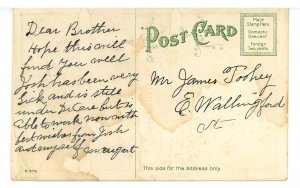 Dear Brother
Hope this will
find You well
Josh has been very
Sick and is still
under Dr Care but is
able to work now with
best wishes from Josh
and myself
POST CARD
Place
Stamp Here
Domestic
One cent
Foreign
Two cents
Mr James Toohey
E. Wallingford
Vt
This side for the Address only.